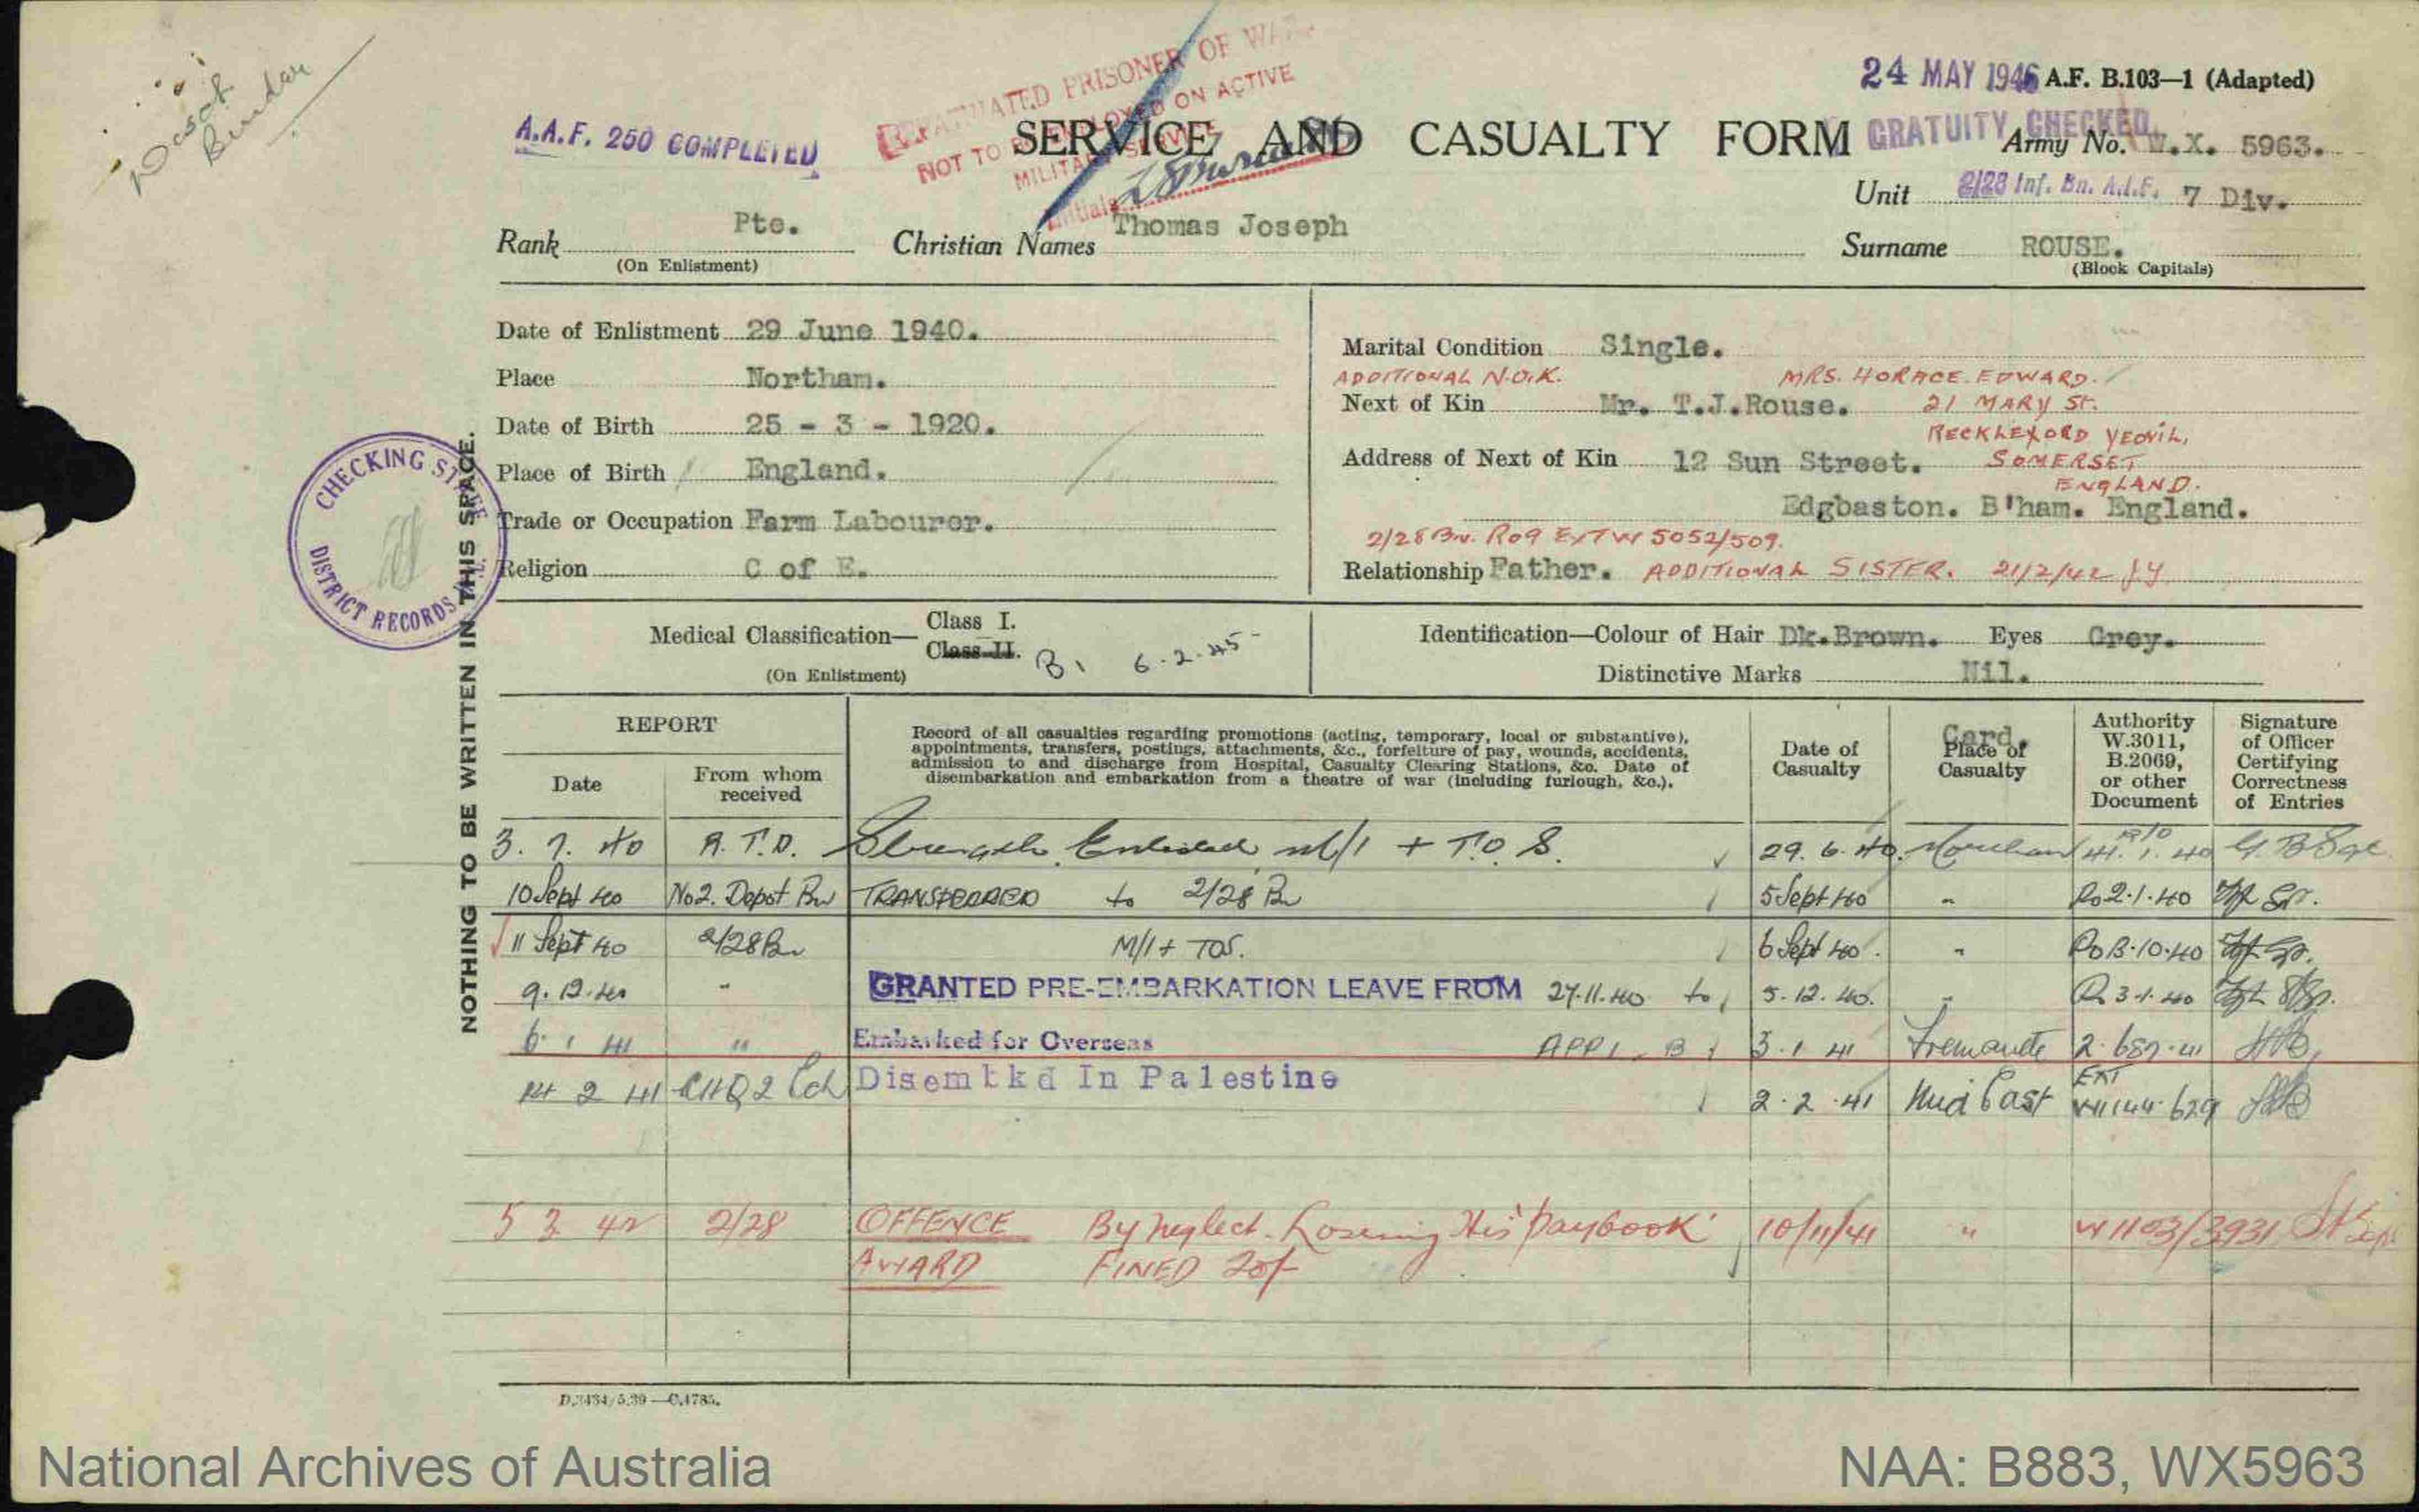 24 MAY 1946 A.F. B.103—1 (Adapted)
A.A.F. 250 COMPLETED
REPATRIATED PRISONER OF WAR
NOT TO BE EMPLOYED ON ACTIVE
MILITARY SERVICE
Initials
SERVICE AND CASUALTY FORM
GRATUITY CHECKED
Army No. W.X. 5963.
Unit 2/28 Inf. Bn. A.I.F. 7 Div.
Rank Pte. Christian Names Thomas Joseph Surname ROUSE.
(On Enlistment) (Block Capitals)
Date of Enlistment 29 June 1940.
Place Northam.
Date of Birth 25 - 3 - 1920.
Place of Birth England.
Trade or Occupation Farm Labourer.
Religion C of E.
Marital Condition Single.
ADDITIONAL N.O.K. MRS. HORACE EDWARD.
Next of Kin Mr. T.J.Rouse. 21 MARY ST.
RECKLEFORD YEOVIL,
Address of Next of Kin 12 Sun Street. SOMERSET
ENGLAND.
Edgbaston. B'ham. England.
2/28 Bn. RO9 EXT W 5052/509.
Relationship Father. ADDITIONAL SISTER. 21/2/42
CHECKING
DISTRICT RECORDS
NOTHING TO BE WRITTEN IN THIS SPACE.
Medical Classification— Class I.
Class II. B1 6.2.45
(On Enlistment)
Identification—Colour of Hair Dk.Brown. Eyes Grey.
Distinctive Marks Nil.
REPORT
Date
From whom received
Record of all casualties regarding promotions (acting, temporary, local or substantive),
appointments, transfers, postings, attachments, &c., forfeiture of pay, wounds, accidents,
admission to and discharge from Hospital, Casualty Clearing Stations, &c. Date of
disembarkation and embarkation from a theatre of war (including furlough, &c.).
Date of Casualty
Card.
Place of Casualty
Authority W.3011, B.2069, or other Document
Signature of Officer Certifying Correctness of Entries
3. 7. 40 A.T.D. Strength Enlisted M/I + T.O.S. 29. 6. 40. Northam
10 Sept 40 No2. Depot Bn TRANSFERRED to 2/28 Bn 5 Sept 40 " Ro 2.1.40
11 Sept 40 2/28 Bn M/I + TOS. 6 Sept 40. "
9. 12. 40 " GRANTED PRE-EMBARKATION LEAVE FROM 27.11.40 to 5.12.40. " Ro 3.1.40
6. 1 41 " Embarked for Overseas 3.1 41 Fremantle 2.687.41
14 2 41 GHQ 2 Ech Disembkd In Palestine 2.2.41 Mid East EXT
5 3 42 2/28 OFFENCE By Neglect. Loseing His 'paybook' 10/11/41 " W1103/3931
AWARD FINED 20/-
D.3434/5.39—C.4785.
National Archives of Australia NAA: B883, WX5963